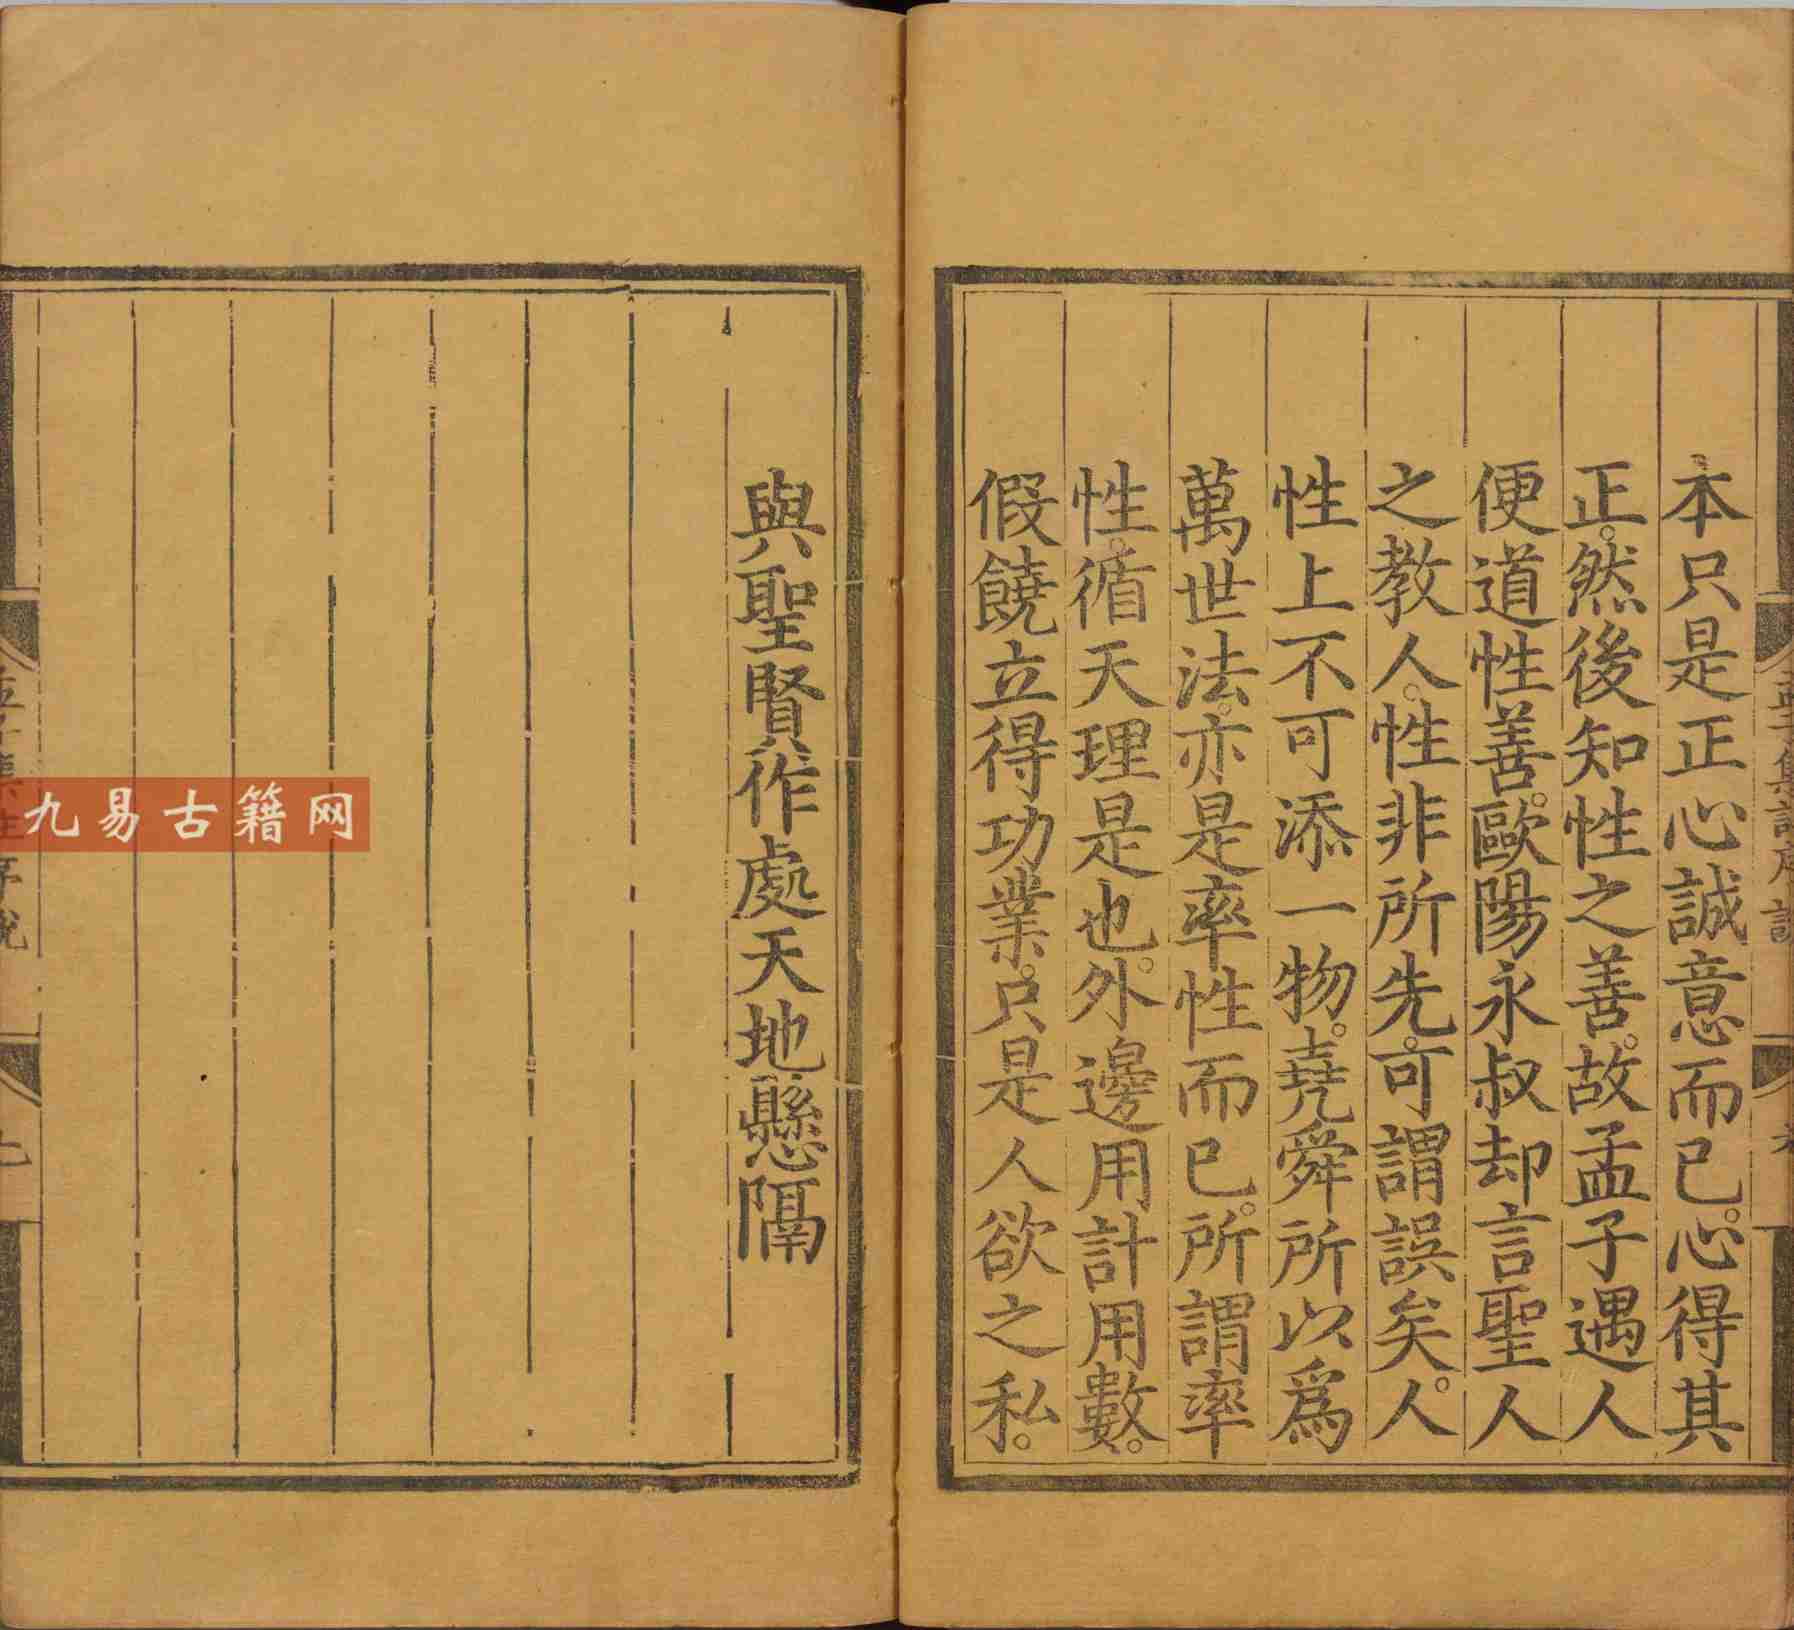 本只是正心誠意而已。心得其
正。然後知性之善。故孟子遇人
便道性善。歐陽永叔却言聖人
之教人。性非所先。可謂誤矣。人
性上不可添一物。堯舜所以爲
萬世法。亦是率性而已。所謂率
性。循天理是也。外邊用計用數。
假饒立得功業。只是人欲之私。
與聖賢作處天地懸隔
九易古籍网